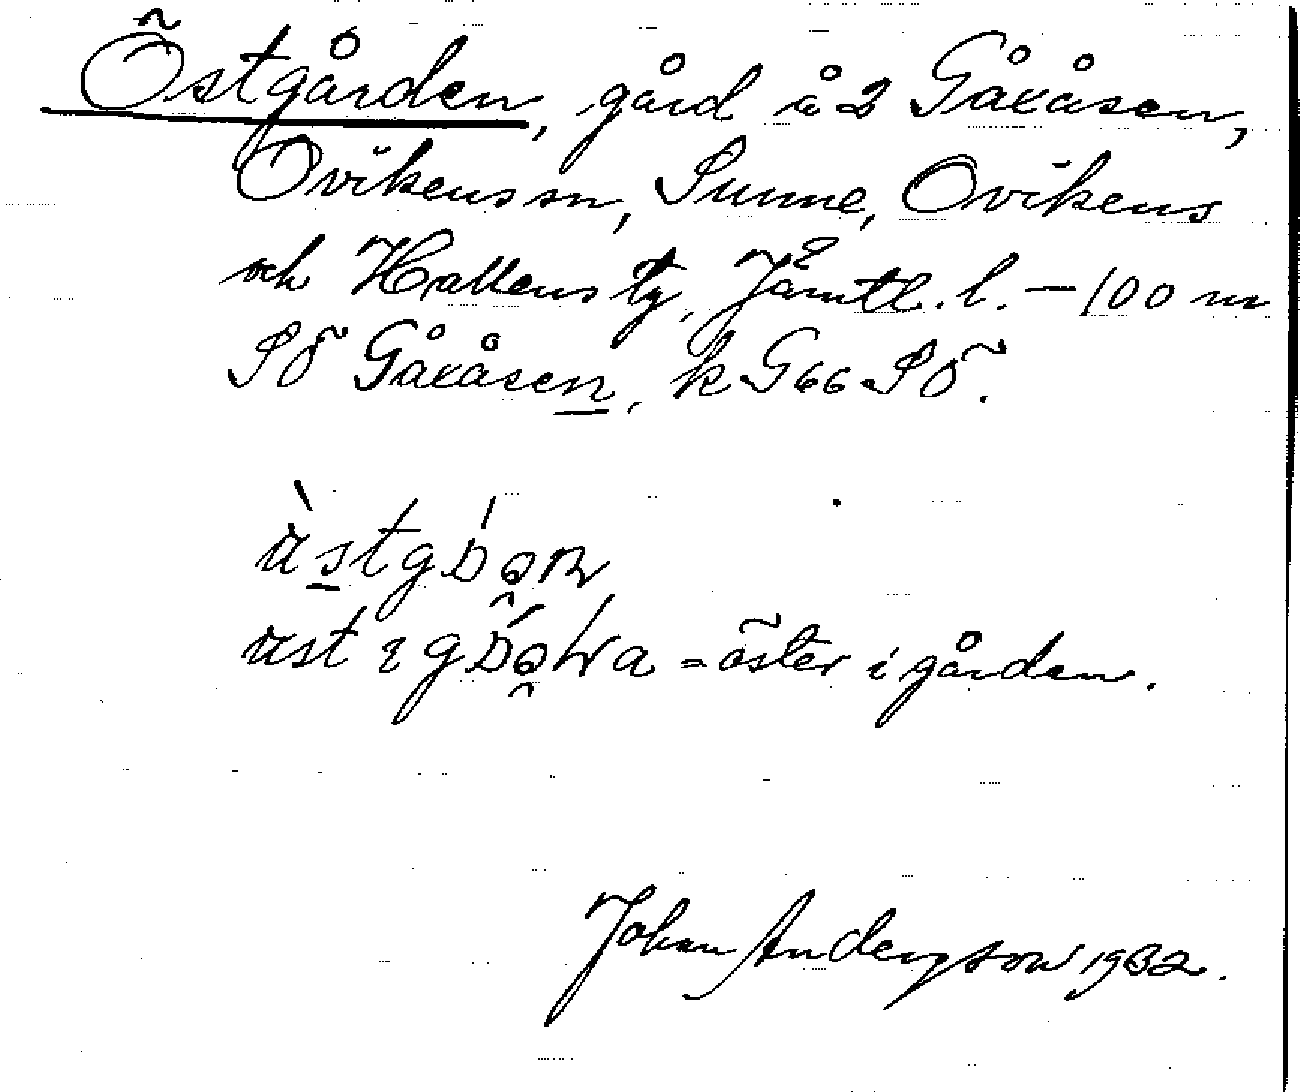 Östgården, gård å 2 Gåxåsen,
Ovikens sn, Sunne, Ovikens
och Hallens tg, Jämtl. l. – 100 m
SÖ Gåxåsen, k G66 SÖ.
= öster i gården.
Johan Anderzson 1932.